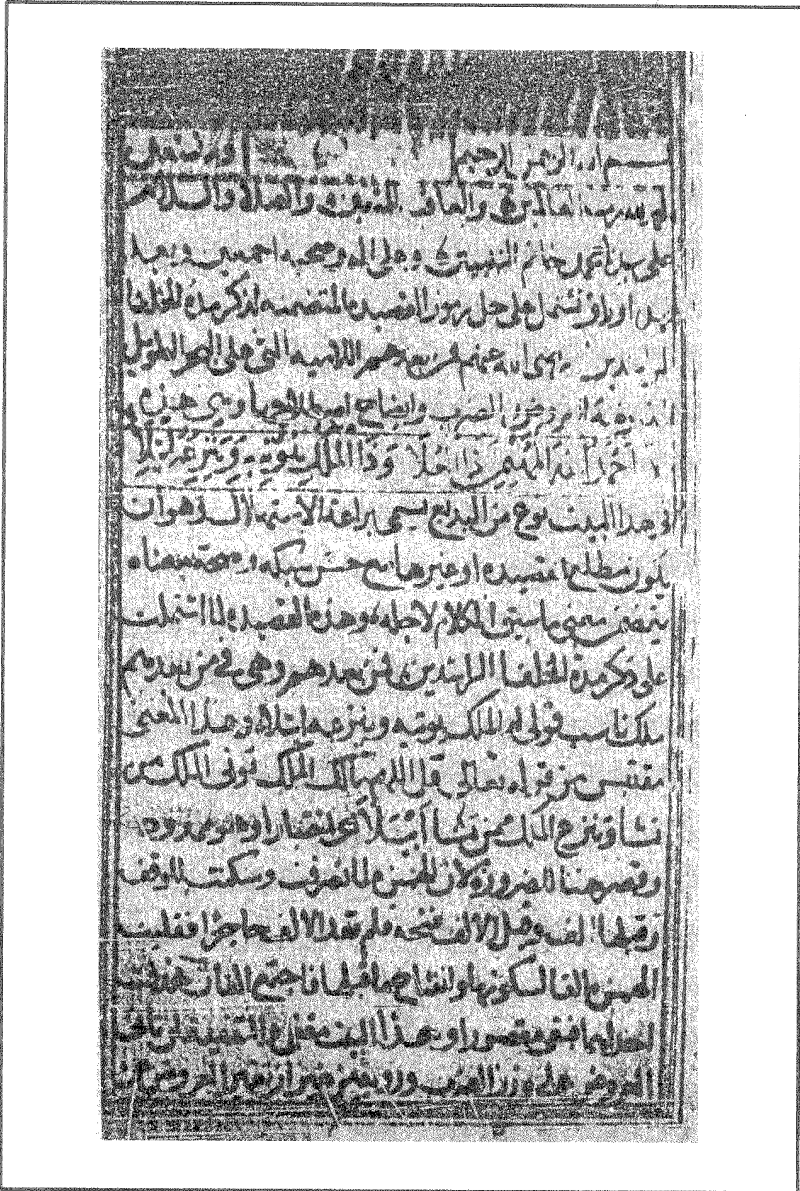 بسم الله الرحمن الرحيم
الحمد لله رب العالمين والعاقبة للمتقين والصلاة والسلام
على سيدنا محمد خاتم النبيين وعلى اله وصحبه اجمعين وبعد
اوراق تشتمل على حل رموز القصيده المتضمنه لذكر مدة الخلفا
رضى الله عنهم فمن بعدهم اللاميه التى على البحر الطويل
العروض الضرب وايضاح اصطلاحها وهى هذه
احمد الله ذا العلا وذا الملك يؤتيه وينزعه ابتلا
فى هذا البيت نوع من البديع يسمى براعة الاستهلال وهو ان
يكون مطلع قصيده او غيرها مع حسن سبكه وصحة معناه
يتضمن معنى ما سيق الكلام لاجله وهذه القصيده لما اشتملت
على ذكر مدة الخلفا الراشدين فمن بعدهم وهى فى من بعدهم
ملك ناسب قولى له الملك يؤتيه وينزعه ابتلاء وهذا المعنى
مقتبس من قوله تعالى قل اللهم مالك الملك تؤتى الملك من
تشا وتنزع الملك ممن تشا ابتلا اى اختبارا وهو ممدود
وقصر هنا للضرورة لان الهمزه لما تطرفت وسكنت للوقف
وقبلها الف وقبل الالف فتحه فلم تعد الالف حاجزا فقلبت
الهمزة الفا لسكونها وانفتاح ما قبلها فاجتمع الفان فحذفت
احداهما فبقى مقصورا وهذا البيت مقفى والتقفيه ان ياتى
العروض على وزن الضرب ورويه من غير ان تغير العروض عن